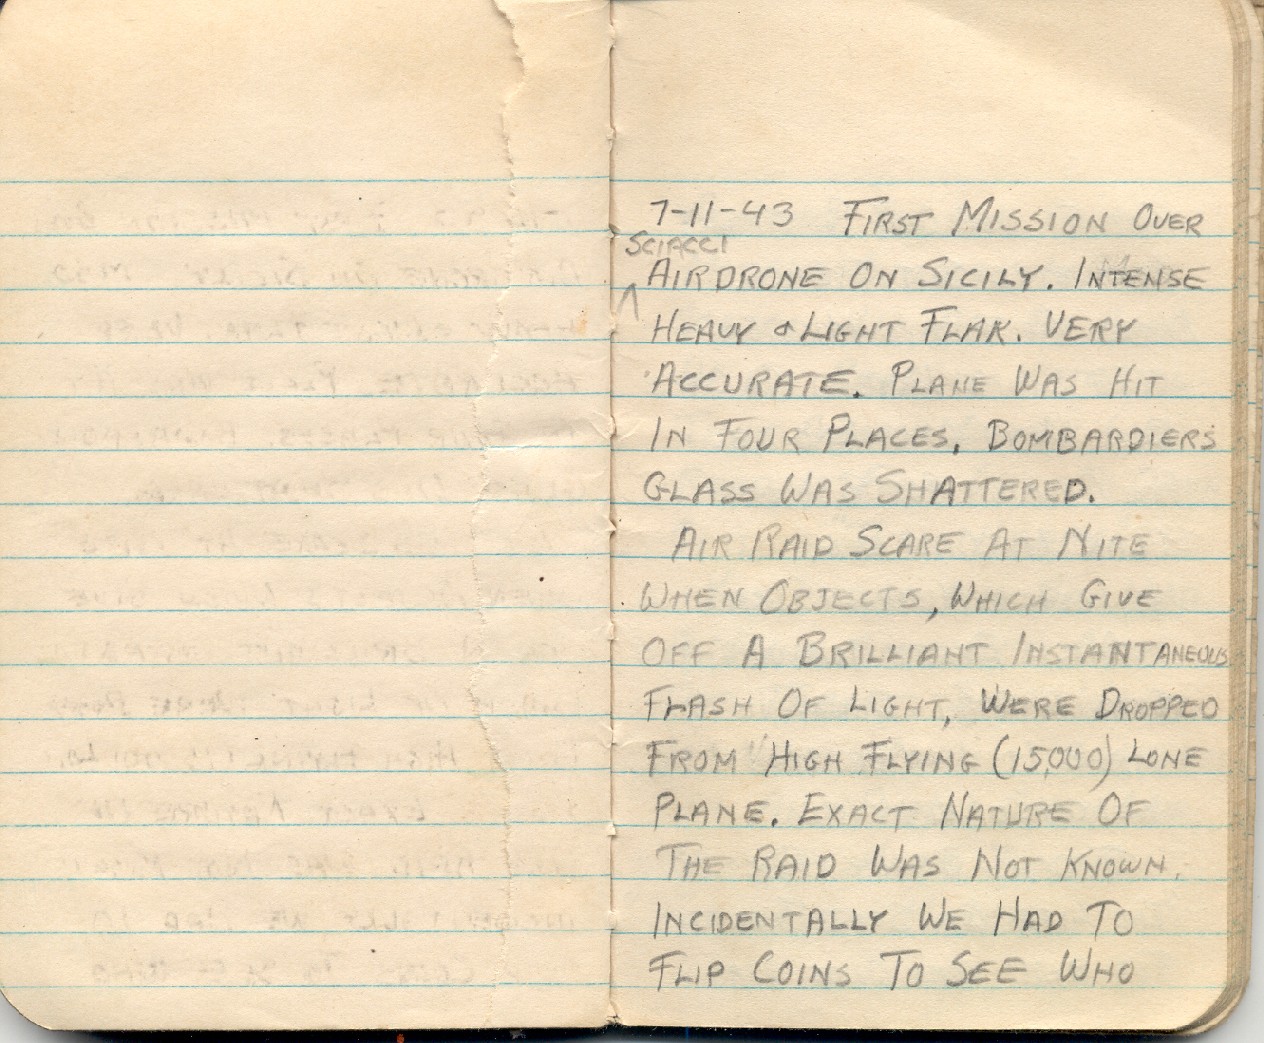 7-11-43 FIRST MISSION OVER
SCIACCI
AIRDRONE ON SICILY. INTENSE
HEAVY & LIGHT FLAK. VERY
ACCURATE. PLANE WAS HIT
IN FOUR PLACES. BOMBARDIERS
GLASS WAS SHATTERED.
AIR RAID SCARE AT NITE
WHEN OBJECTS, WHICH GIVE
OFF A BRILLIANT INSTANTANEOUS
FLASH OF LIGHT, WERE DROPPED
FROM HIGH FLYING (15,000) LONE
PLANE. EXACT NATURE OF
THE RAID WAS NOT KNOWN.
INCIDENTALLY WE HAD TO
FLIP COINS TO SEE WHO